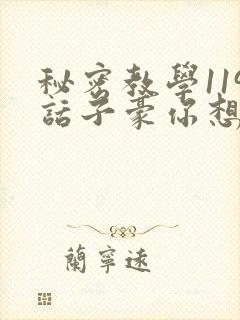 秘密教學119
話子豪你想
蘭寧遠